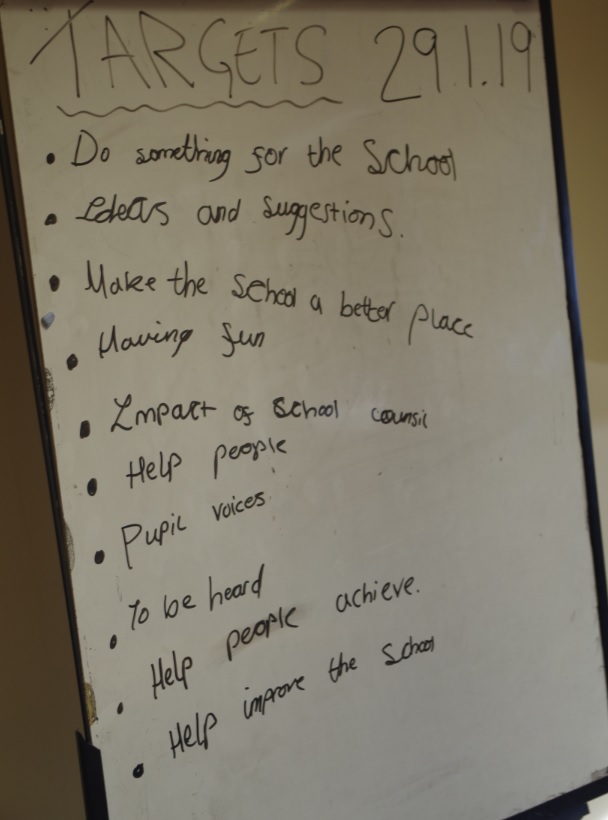 TARGETS 29.1.19
• Do something for the School
• Ideas and suggestions.
• Make the School a better place
• Having fun
• Impact of School counsil
• Help people
• Pupil voices
• To be heard
• Help people achieve.
• Help improve the School